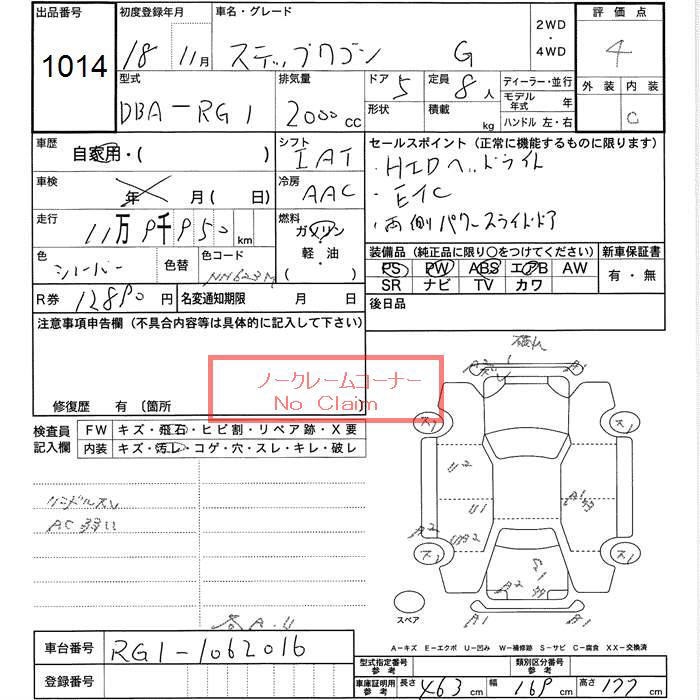 出品番号
1014
初度登録年月
18 11月
車名・グレード
ステップワゴン G
2WD
・
4WD
評価点
4
外装 内装
C
型式
DBA-RG1
排気量
2000cc
ドア
5
形状
定員
8人
積載
kg
ディーラー・並行
モデル年式 年
ハンドル 左・右
車歴
自家用・( )
シフト
IAT
セールスポイント (正常に機能するものに限ります)
・HIDヘッドライト
・ETC
・両側パワースライドドア
車検
年 月( 日)
冷房
AAC
走行
11万9千950km
燃料
ガソリン
軽・油
( )
色
シルバー
色替
色コード
NH623M
装備品 (純正品に限り○をつけてください)
新車保証書
PS PW ABS エアB AW
SR ナビ TV カワ
有・無
R券 12890円
名変通知期限 月 日
後日品
注意事項申告欄 (不具合内容等は具体的に記入して下さい)
ノークレームコーナー
No Claim
修復歴 有 〔箇所 〕
検査員
記入欄
FW キズ・飛石・ヒビ割・リペア跡・X要
内装 キズ・汚レ・コゲ・穴・スレ・キレ・破レ
ハンドルスレ
AC弱い
A1
U2
U1
A1
A2
U3
A2
A1
A1
スペア
A-キズ E-エクボ U-凹み W-補修跡 S-サビ C-腐食 XX-交換済
車台番号
RG1-1062016
登録番号
型式指定番号
参考
類別区分番号
参考
車庫証明用
参考
長さ 463cm 幅 169cm 高さ 177cm